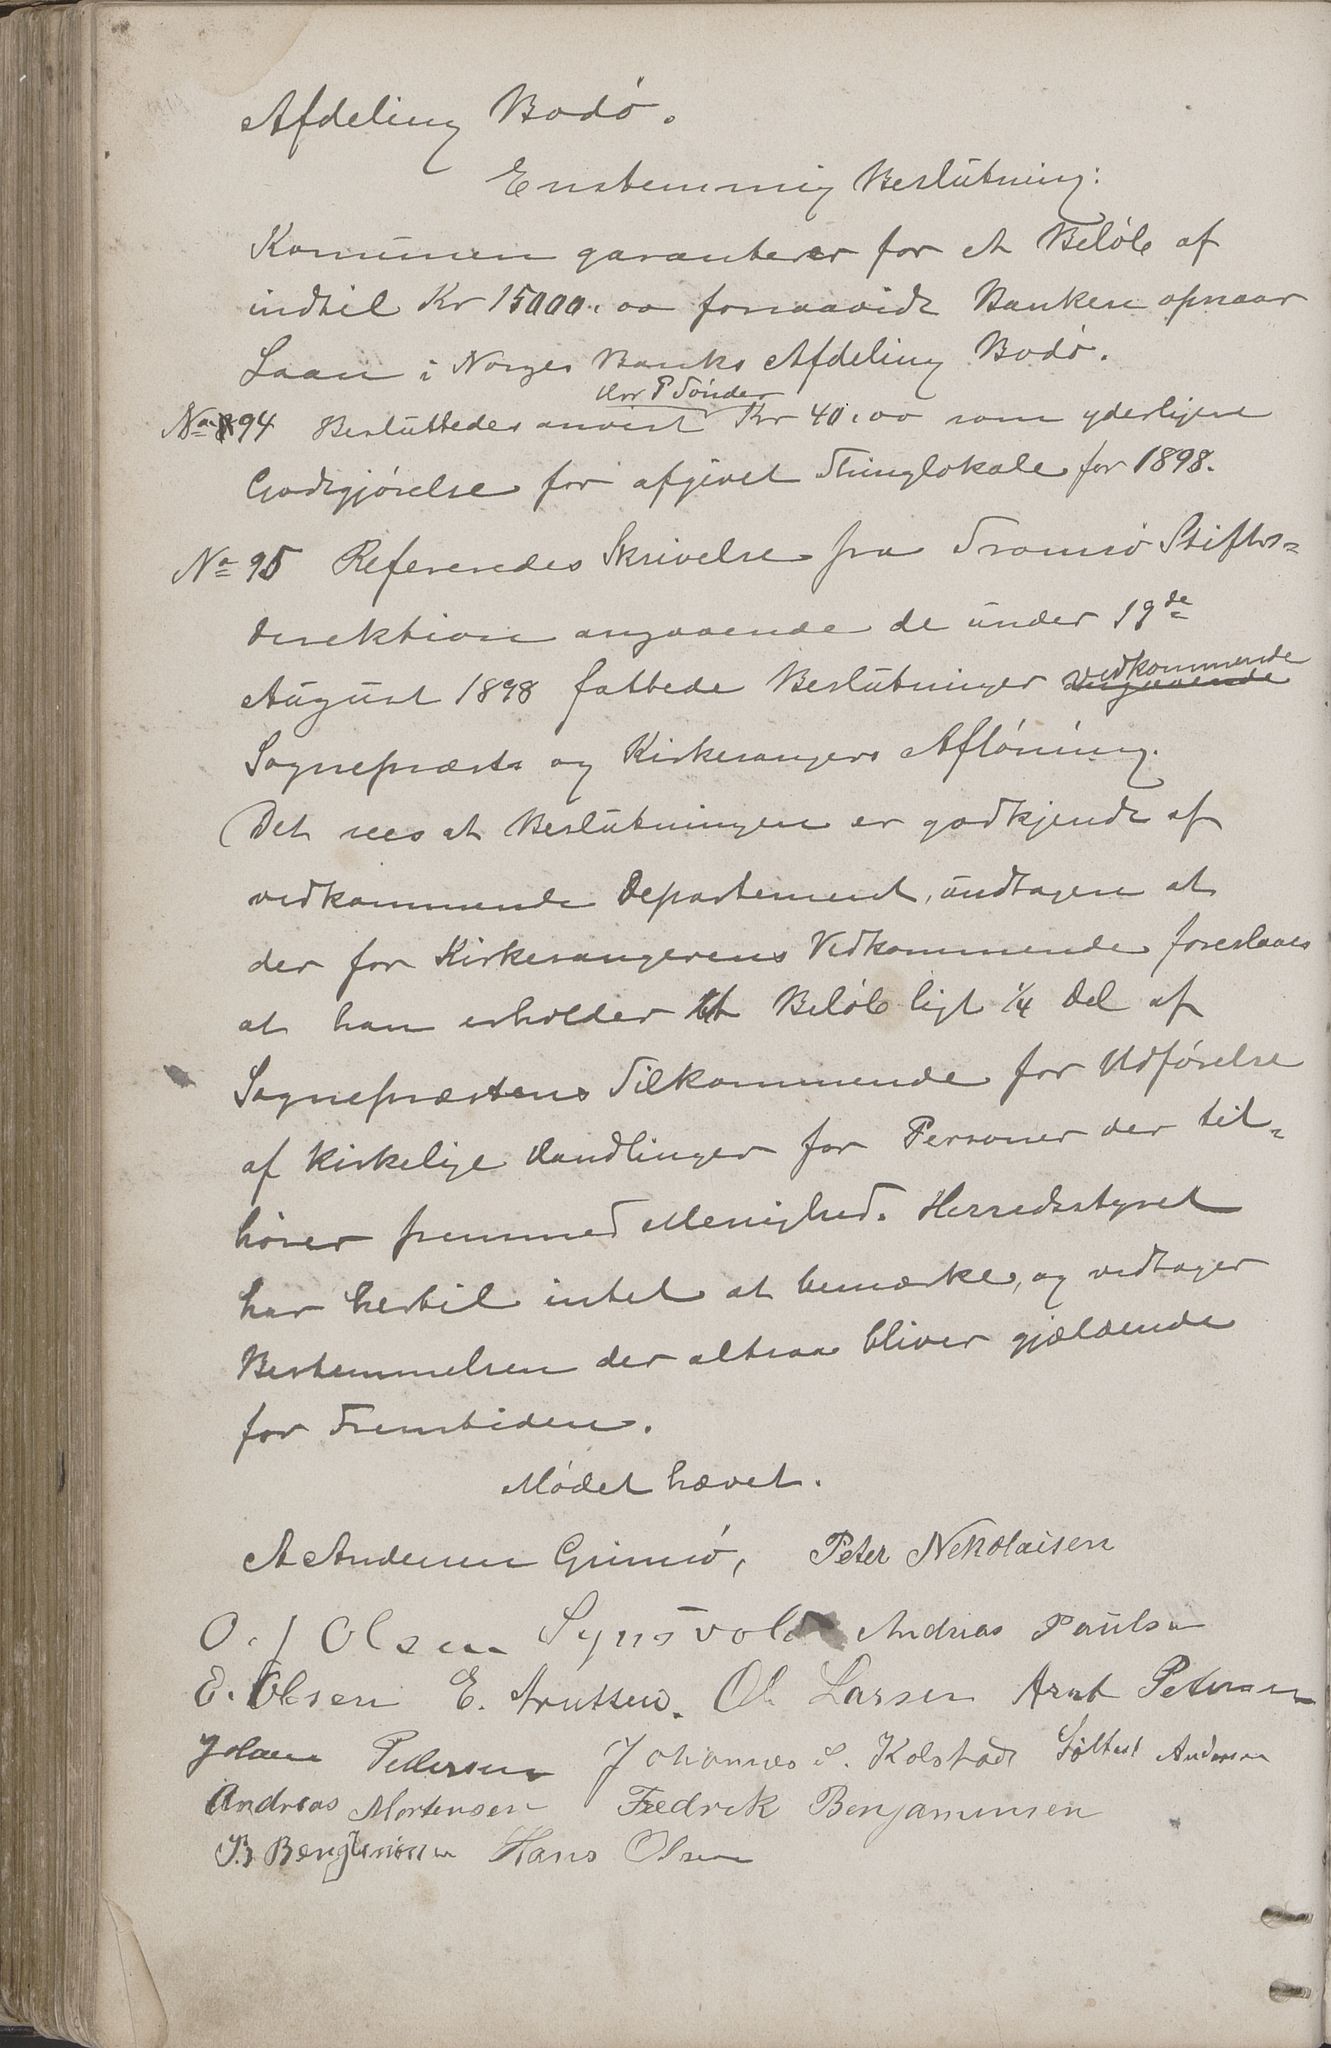 Afdeling Bodø.
Enstemmig Beslutning:
Kommunen garanterer for et Beløb af
indtil Kr 15000.00 forsaavidt Banken opnaar
Laan i Norges Banks Afdeling Bodø.
Hrr P Tønder
No 94 Besluttedes anvist Kr 40.00 som yderligere
Godtgjørelse for afgivet Thinglokale for 1898.
No 95 Refereredes Skrivelse fra Tromsø Stifts-
direktion angaaende de under 19de
vedkommende
August 1898 fattede Beslutninger angaaende
Sognepræsts og Kirkesangers Aflønning.
Det sees at Beslutningen er godkjendt af
vedkommende Departement, undtagen at
der for Kirkesangerens Vedkommende foreslaaes
at han erholder et Beløb ligt 1/4 Del af
Sognepræstens Tilkommende for Udførelse
af kirkelige Handlinger for Personer der til-
hører fremmed Menighed. Herredsstyret
har hertil intet at bemærke, og vedtager
Bestemmelsen der altsaa bliver gjældende
for Fremtiden.
Mødet hævet.
A Andersen Grimsø, Peter Nekolaisen
O. J Olsen Synsvold Andreas Paulsen
E. Olsen E. Knutsen. Ol. Larsen Arnt Petersen
Johan Pedersen Johannes S. Kolstad Andersen
Andreas Mortensen Fredrek Benjaminsen
B. Hans Olsen